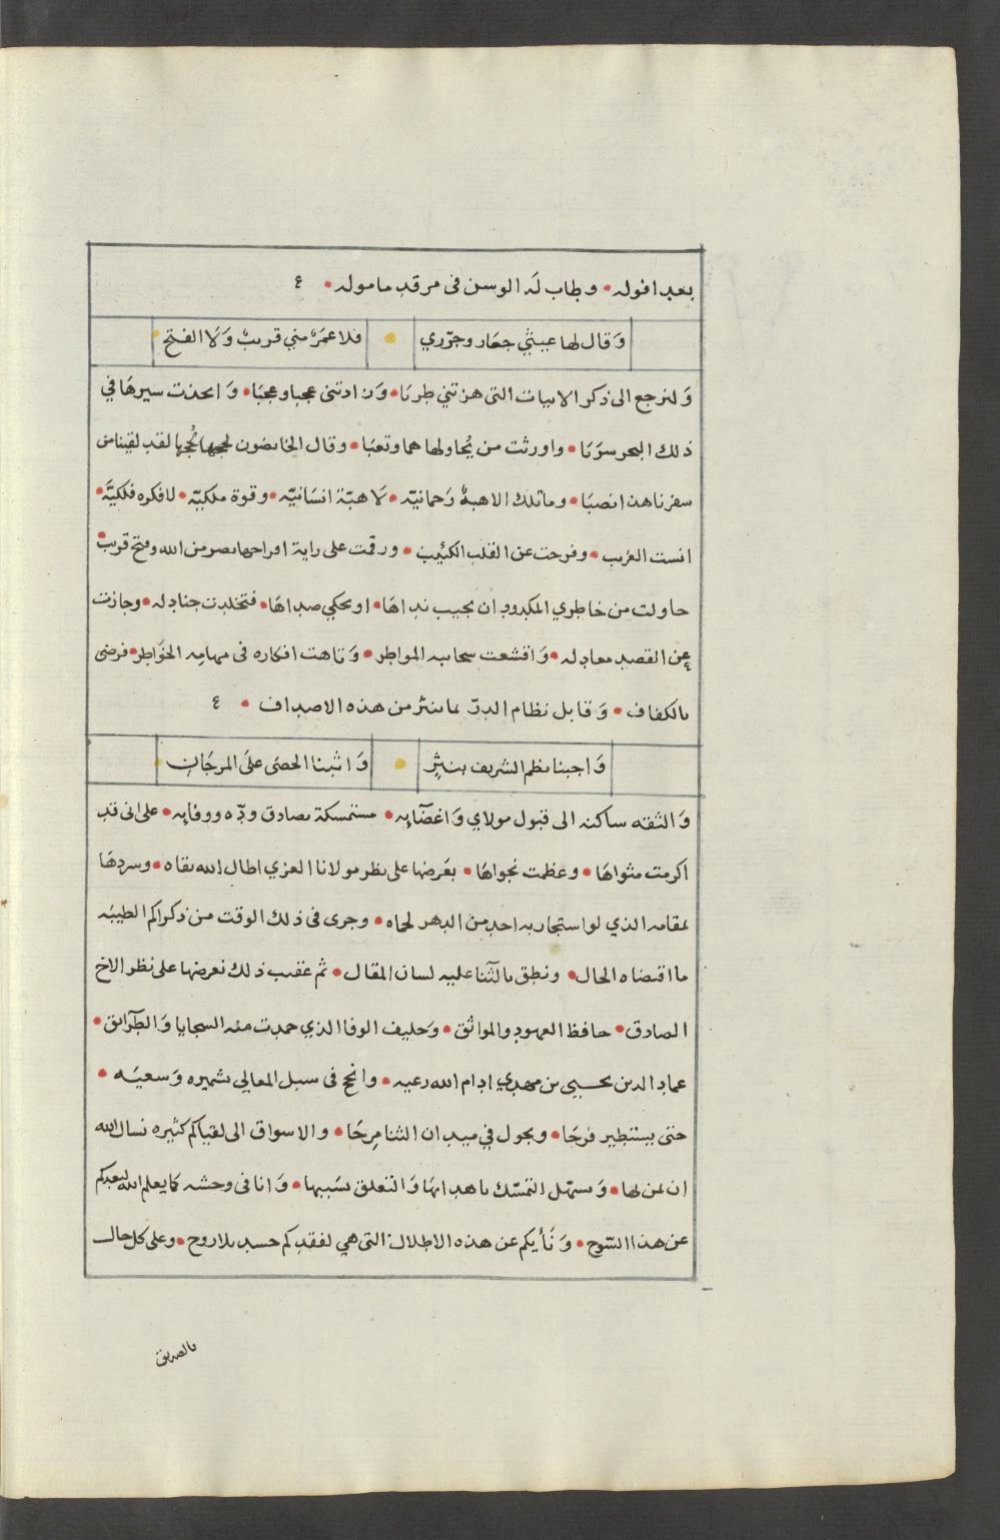 بعد افوله • وطاب له الوسن في مرقد ماموله • ع
وقال لها عيثي جعار وجرّري • فلا عمرٌ مني قريبٌ ولا الفتح
ولنرجع الى ذكر الابيات التي هزتني طربا • وزادتني عجبا وعجبا • واتخذت سيرها في
ذلك البحر سربا • واورثت من يحاولها هما وتعبا • وقال الخايضون لججها لقد لقينا من
سفرنا هذا نصبا • وما تلك الا هبةٌ رحمانيّه • لا هبّة انسانيّه • وقوة ملكيّه • لا فكره فلكيّه •
انست الغريب • وفرجت عن القلب الكئيب • ورقمت على راية افراحها نصر من الله وفتح قريب •
حاولت من خاطري المكدود ان يجيب نداها • او يحكي صداها • فتخلدت جنادله • وجازت
عن القصد معادله • واقشعت سحايبه المواطر • وتاهت افكاره في مهامه الخواطر • فرضى
بالكفاف • وقابل نظام الدرّ بما ينثر من هذه الاصداف • ع
واجبنا نظم الشريف بنثرٍ • واثبنا الحصى على المرجان •
والثقه ساكنه الى قبول مولاي واغضآيه • مستمسكة بصادق ودّه ووفايه • على اني قد
اكرمت مثواها • وعظمت نجواها • بعرضها على نظر مولانا العزي اطال الله بقاه • وسردها
بمقامه الذي لو استجار به احد من الدهر لحماه • وجرى في ذلك الوقت من ذكراكم الطيبه
ما اقتضاه الحال • ونطق بالثّنا عليه لسان المقال • ثم عقيب ذلك نعرضها على نظر الاخ
الصادق • حافظ العهود والمواثق • وحليف الوفا الذي حمدت منه السجايا والطرآئق •
عماد الدين يحيى بن مهدي ادام الله رعيه • وانجح في سبل المعالي تشميره وسعيه •
حتى يستطير فرحا • ويجول في ميدان الثنا مرحا • والاشواق الى لقياكم كثيره نسال الله
ان يمن بها • ويسهل التمسّك باهدابها والتعلق بسببها • وانا في وحشه كما يعلم الله لبعدكم
عن هذا السّوح • ونأيكم عن هذه الاطلال التي هي لفقدكم جسد بلا روح • وعلى كل حال